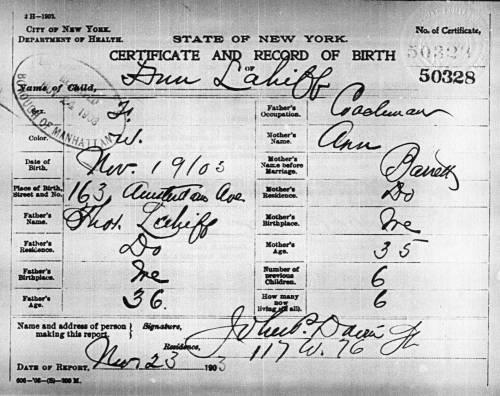 2 H-1903.
CITY OF NEW YORK.
DEPARTMENT OF HEALTH.
STATE OF NEW YORK.
No. of Certificate,
CERTIFICATE AND RECORD OF BIRTH
OF
50328
50328
Name of Child, Ann Lahiff
BOROUGH OF MANHATTAN
1903
Sex. F.
Father's Occupation. Coachman
Color. W.
Mother's Name. Ann
Date of Birth Nov. 19/03
Mother's Name before Marriage. Barrett
Place of Birth, Street and No. 163 Amsterdam Ave
Mother's Residence. Do
Father's Name Thos. Lahiff
Mother's Birthplace. Ire
Father's Residence. Do
Mother's Age. 35
Father's Birthplace. Ire
Number of previous Children. 6
Father's Age. 36.
How many now living (in all). 6
Name and address of person making this report.
Signature, John P. Davis Jr
Residence, 117 W. 76
DATE OF REPORT, Nov 23 1903